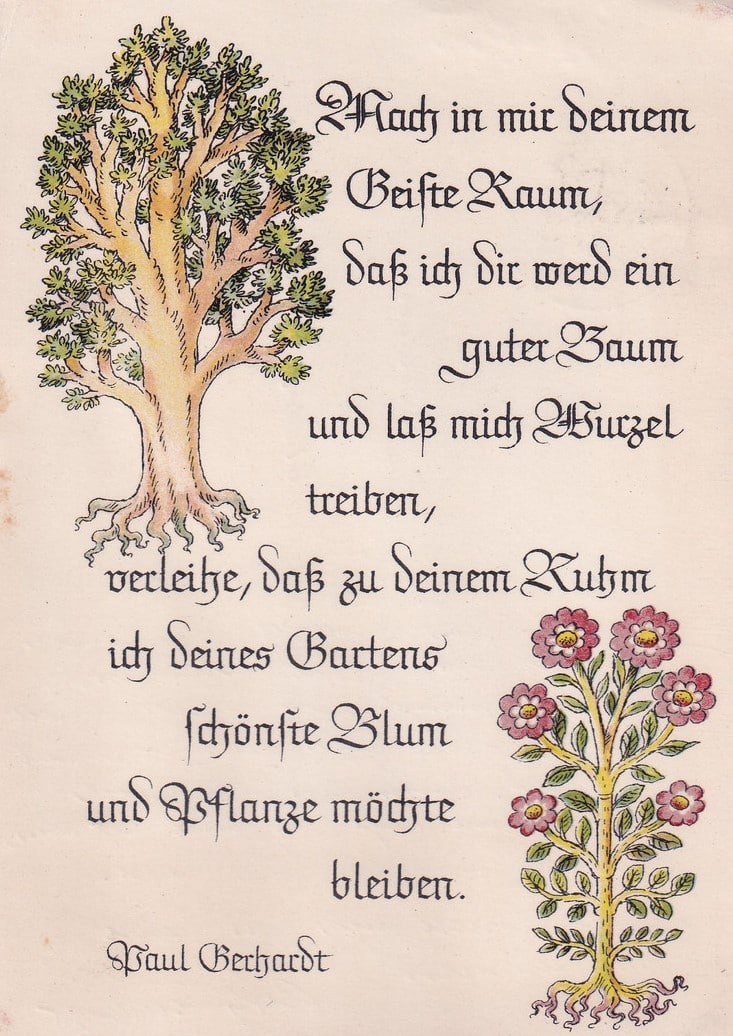 Mach in mir deinem
Geiste Raum,
daß ich dir werd ein
guter Baum
und laß mich Wurzel
treiben,
verleihe, daß zu deinem Ruhm
ich deines Gartens
schönste Blum
und Pflanze möchte
bleiben.
Paul Gerhardt